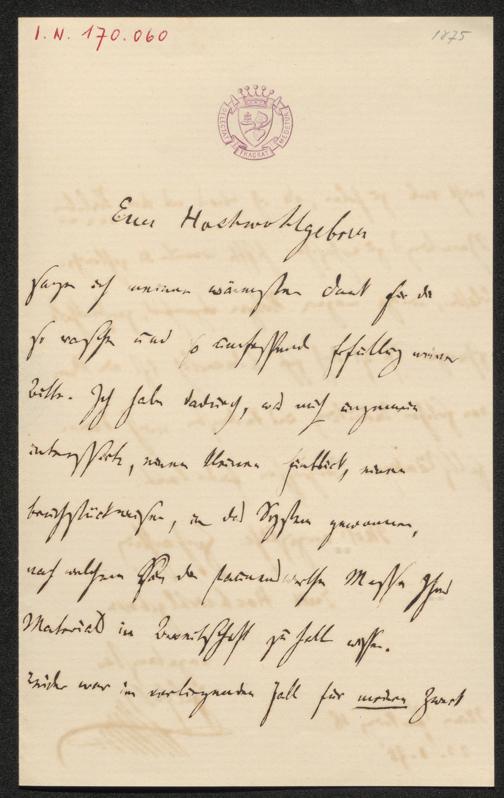 I.N. 170.060
1875
DELECTAT TRACTAT MEDETUR
Euer Hochwohlgeboren
sagen ich meinen wärmsten Dank für die
so rasche und so umfassend Erfüllung meiner
Bitte. Ich habe dadurch, was mich ungemein
interessirte, einen kleinen Einblick, einen
bruchstückweisen, in das System gewonnen,
nach welchem Sie die staunenswerthe Masse Ihres
Materials in Bereitschaft zu halten wissen.
Leider war im vorliegenden Fall für meinen Zweck